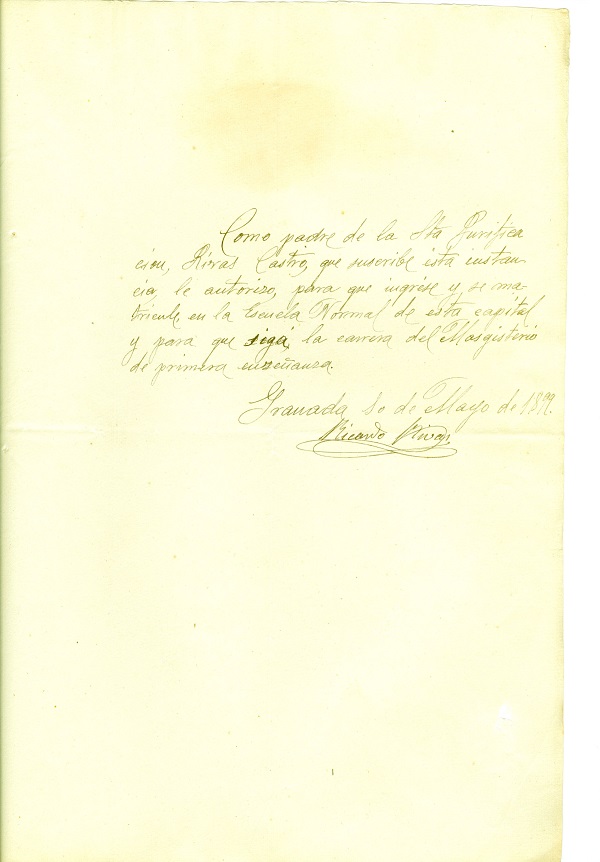 Como padre de la Sta Purifica
cion, Rivas Castro, que suscribe ista instan-
cia, le autorizo, para que ingrése y se ma-
tricule en la Escuela Normal de esta capital
y para que siga, la carrera del Magisterio
de primera enseñanza.
Granada de Mayo de 1899.
Ricardo Rivas